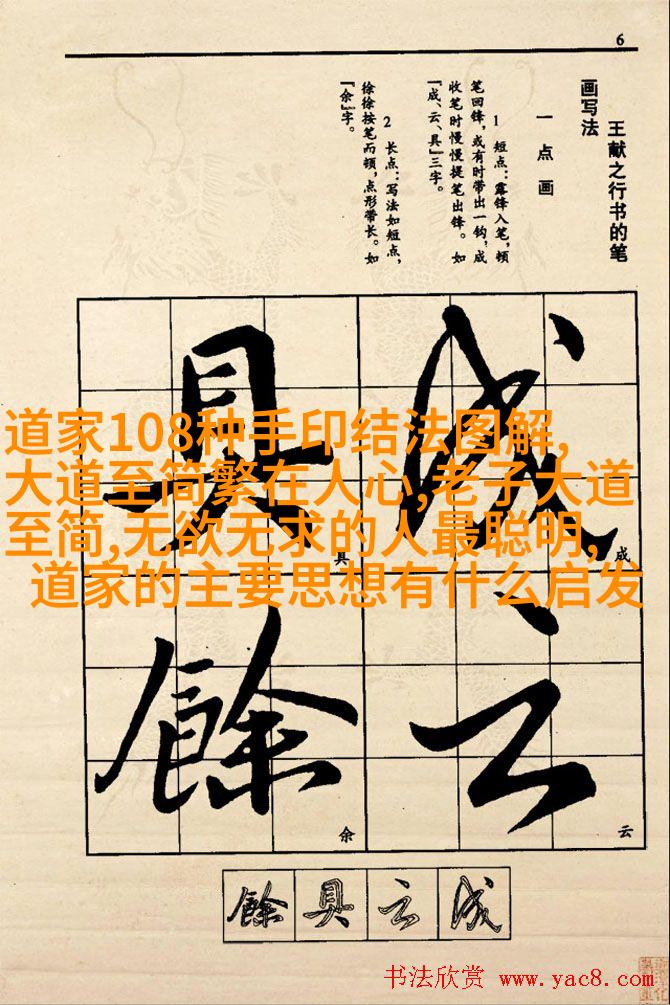 6
王献之行书的笔
画写法
一点画
1 短点：露锋入笔，顿
笔回锋，或有时带出一钩，成
收笔时慢慢提笔出锋。如
“成、云、具”三字。
2 长点：写法如短点，
徐徐按笔而顿，点形带长。如
“余”字。
道家108种手印结法图解,
大道至简繁在人心,老子大道
至简,无欲无求的人最聪明,
道家的主要思想有什么启发
成
具
成
具
云
餘
云
余
餘具云成
书法欣赏 www.yac8.com